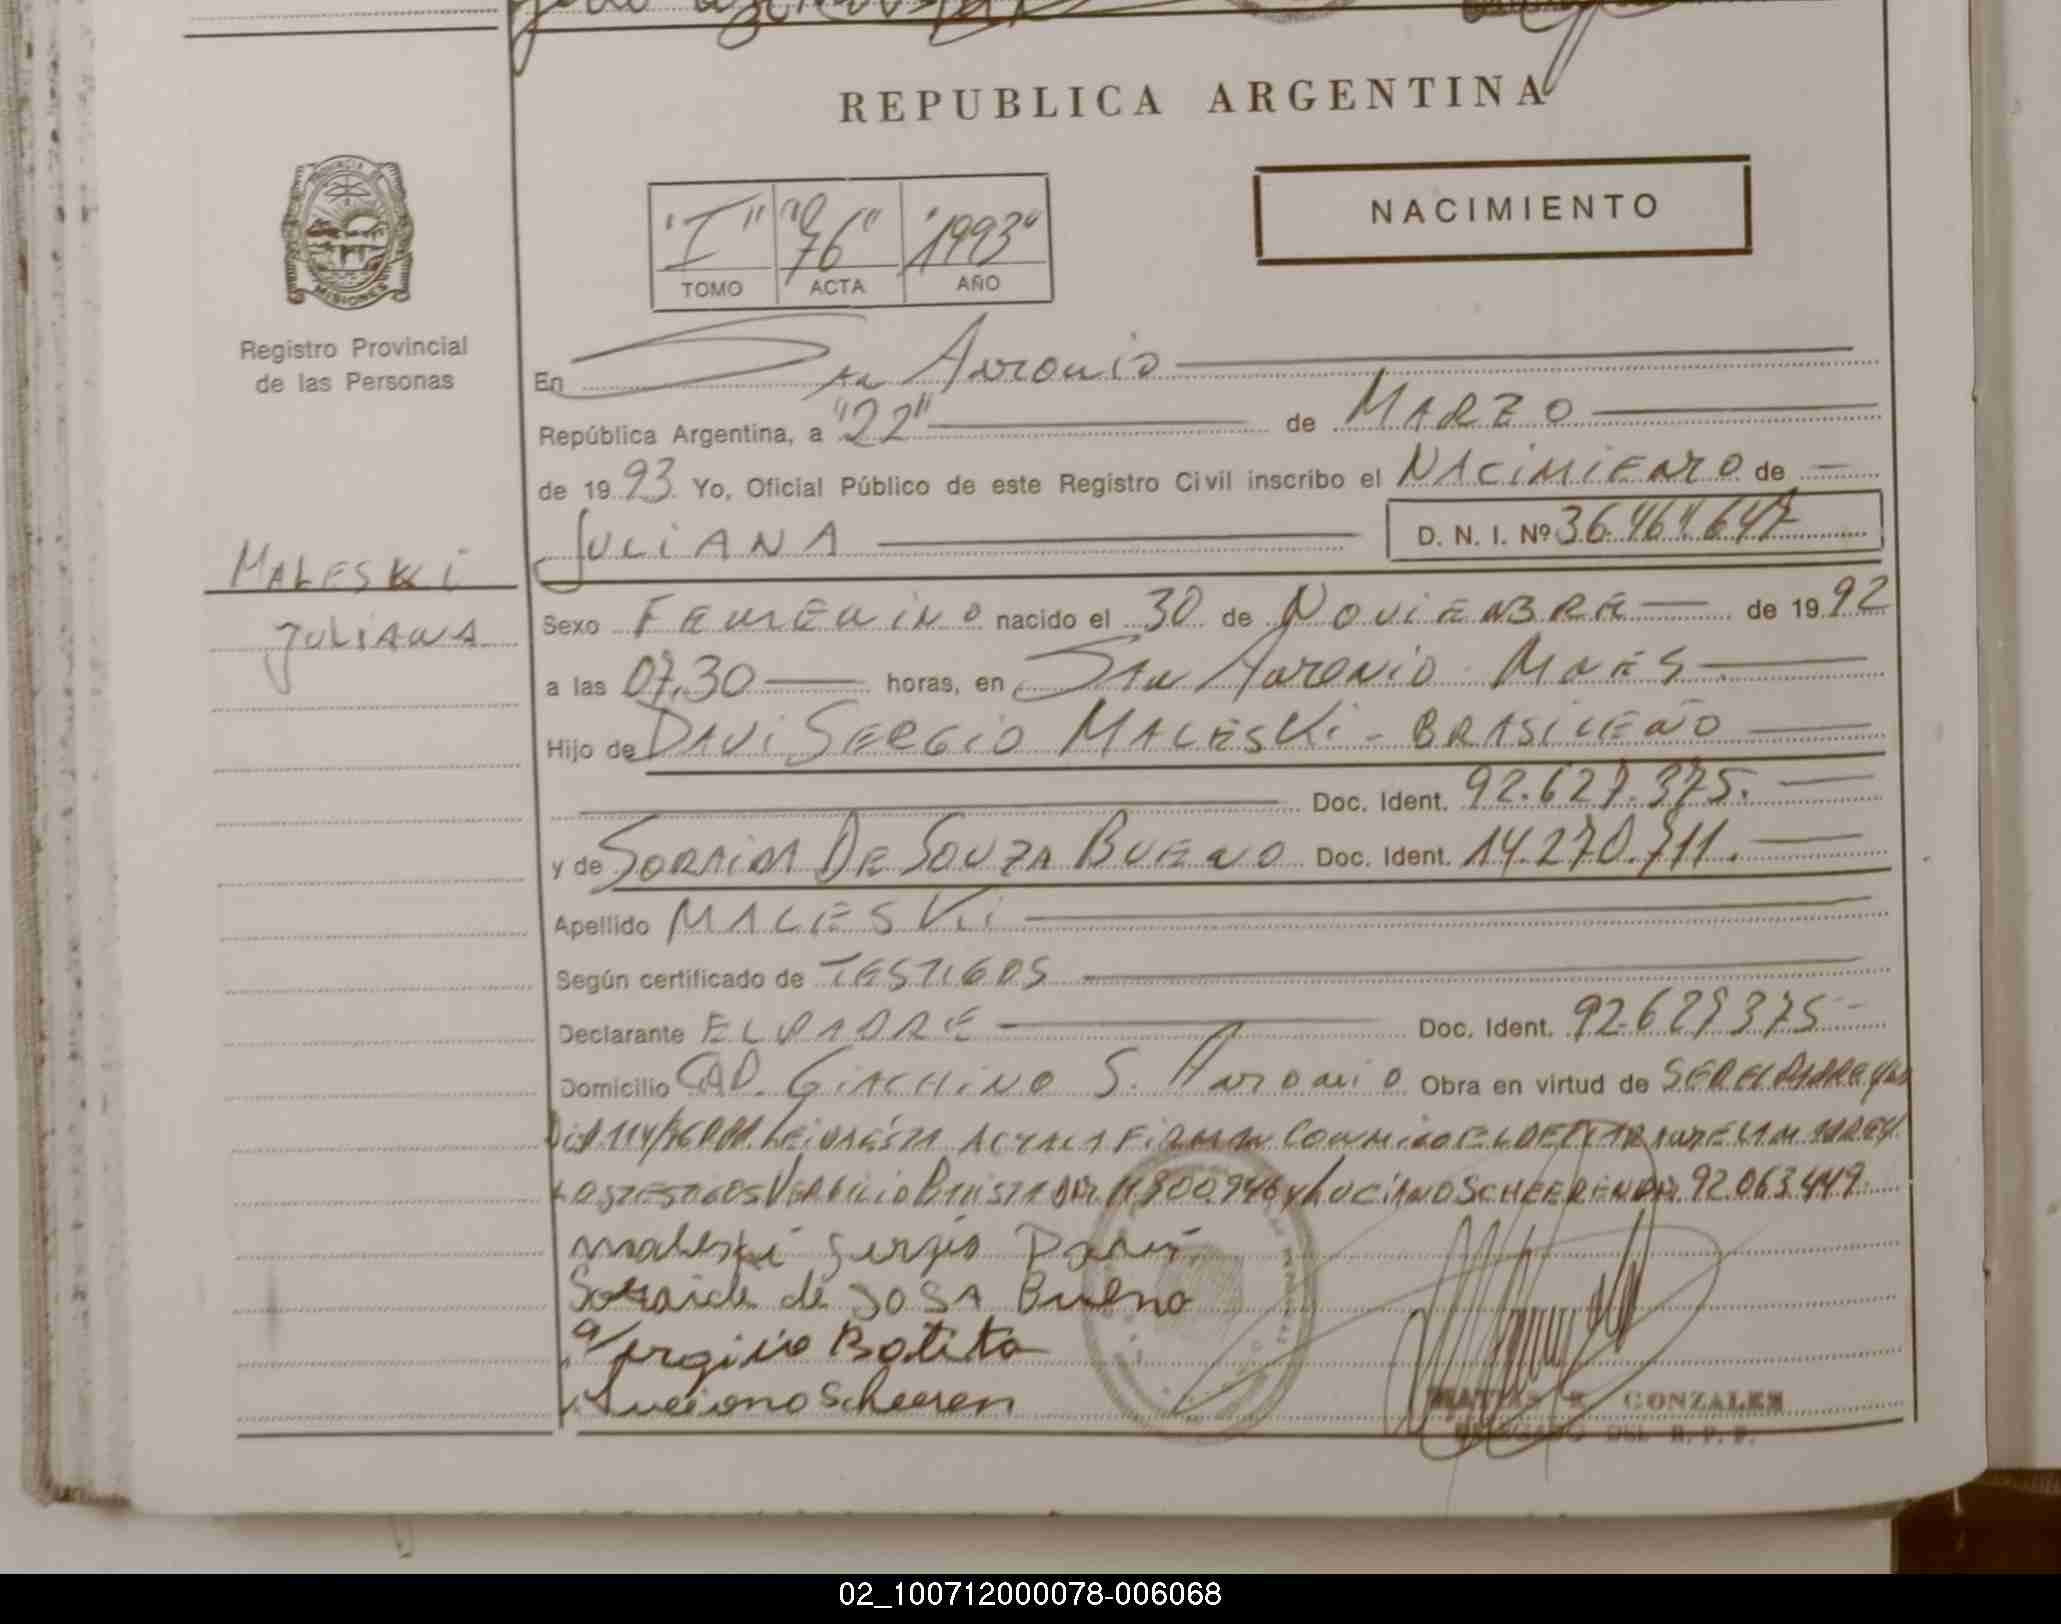 REPUBLICA ARGENTINA
PROVINCIA DE
MISIONES
Registro Provincial
de las Personas
NACIMIENTO
"I" "76" "1993"
TOMO ACTA AÑO
En San Antonio
República Argentina, a "22" de MARZO
de 1993 Yo, Oficial Público de este Registro Civil inscribo el NACIMIENTO de
JULIANA D. N. I. Nº 36.461.647
MALESKI
JULIANA
Sexo FEMENINO nacido el 30 de NOVIENBRE de 1992
a las 07,30 horas, en SAN ANTONIO MNES
Hijo de DAVI SERGIO MALESKI - BRASILEÑO
Doc. Ident. 92.627.375.
y de SORAIDA DE SOUZA BUENO Doc. Ident. 14.270.711.
Apellido MALESKI
Según certificado de TESTIGOS
Declarante EL PADRE Doc. Ident. 92.627375
Domicilio CAP. GIACHINO S. ANTONIO Obra en virtud de SER EL PADRE
LEIDA ESTA ACTA LA FIRMAN CONMIGO EL
LOS TESTIGOS VERGILIO BATISTA DNI 11.800.946 y LUCIANO SCHEEREN DNI 92.063.449
Maleski Sergio Davi
Soraide de SOSA Bueno
Vergilio Batista
Luciano Scheeren
MATIAS R GONZALEZ
DELEGADO DEL R. P. P.
02_100712000078-006068